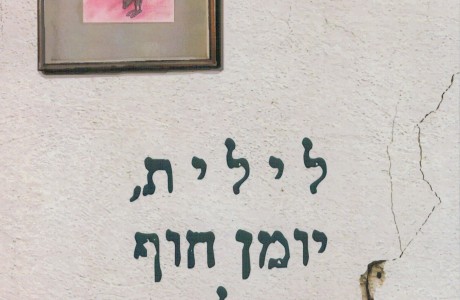 לילית,
יומן חוף